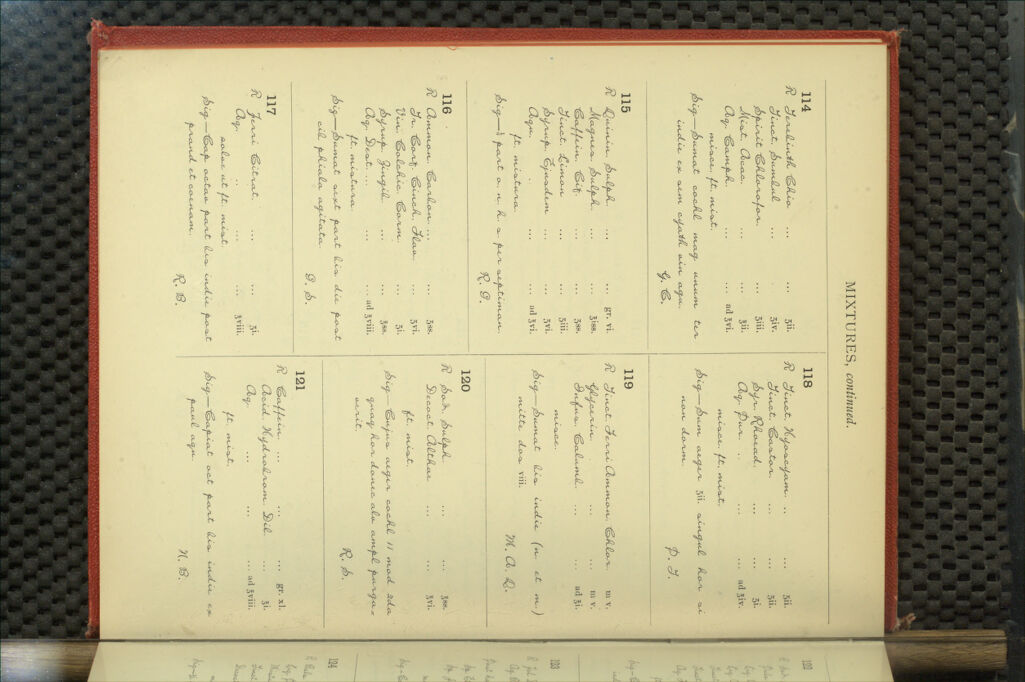 MIXTURES, continued.
114
℞ Terebinth Chio. ... ... ʒii.
Tinct. Sumbul ... ʒiv.
Spirit Chlorofor. ... ʒiii.
Mist. Acac. ... ... ʒii.
Aq. Camph. ... ... ad ℥vi.
misce. ft. mist.
Sig—Sumat cochl mag unum ter
indie ex sem cyath vin aqu.
G. C.
115
℞ Quinin. Sulph. ... ... gr. vi.
Magnes. Sulph. ... ℥iss.
Caffein. Cit. ... ... ʒss.
Tinct. Limon ... ... ʒiii.
Syrup. Ejusdem ... ... ʒvi.
Aqu. ... ... ad ℥vi.
ft. mistura.
part o. n. h. s. per septiman.
R. G.
116
℞ Ammon Carbon. ... ... ʒss.
Tr. Cort. Cinch. Flav. ... ʒvi.
Vin. Colchic. Corm. ... ʒi.
Syrup. Zingib. ... ... ℥ss.
Aq. Dest. ... ... ... ad ℥viii.
ft. mistura.
Sig—Sumat sext part bis die post
cib phiala agitata.
P. S.
117
℞ Ferri Citrat. ... ... ʒi.
Aq. ... ... ... ℥viii.
solve ut ft. mist.
Sig—Cap octav part bis indie post
prand et coenam.
R. B.
118
℞ Tinct. Hyoscyam. ... ... ʒii.
Tinct. Castor. ... ... ʒii.
Syr. Rhoead. ... ... ℥i.
Aq. Pur. ... ... ... ad ℥iv.
misce. ft. mist.
Sig—Sum aeger ʒii. singul hor si
non dorm.
P. J.
119
℞ Tinct. Ferri Ammon. Chlor. m v.
Glycerin. ... ... m v.
Infus. Calumb. ... ... ad ℥i.
misce.
Sig—Sumat bis indie (n. et m.)
mitte dos viii.
M. A. D.
120
℞ Sod. Sulph. ... ... ℥ss.
Decoct. Althae. ... ... ℥vi.
ft. mist.
Sig—Cujus aeger cochl 11 mod 2da
quaq hor donec alv ampl purga-
verit.
R. S.
121
℞ Caffein. ... ... ... gr. xl.
Acid Hydrobrom. Dil. ... ʒi.
Aq. ... ... ... ad ℥viii.
ft. mist.
Sig—Capiat oct part bis indie ex
paul aqu.
N. B.
123
124